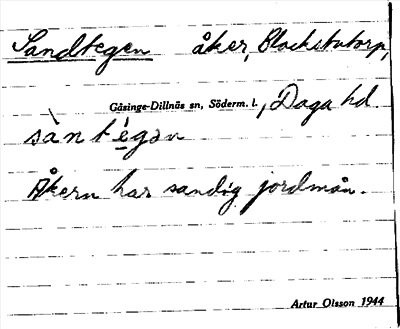 Sandtegen åker, Blackstatorp,
Gåsinge-Dillnäs sn, Söderm. l., Daga hd
sàn tégan
Åkern har sandig jordmån.
Artur Olsson 1944